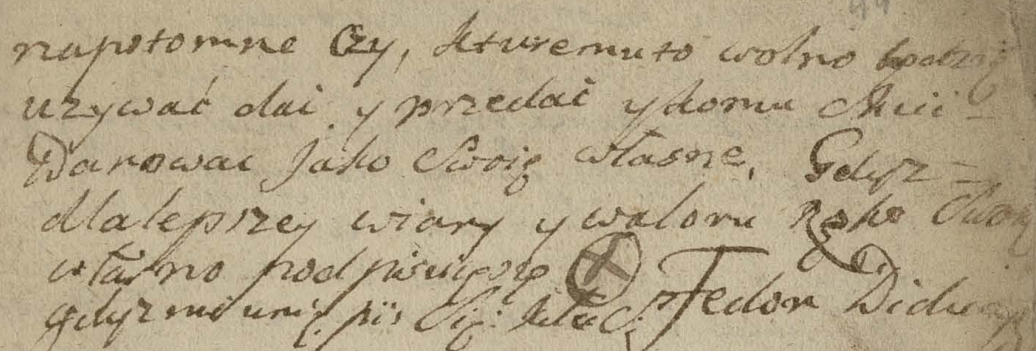 napotomne Czy, kturemuto wolno
uzywać dać y przedać y komu chcić
Darować Jako Swoię własne, Gdysz
dla lepszey wiary y waloru Ręko
własno podpisuięsię
gdyz nie umię pis Fedor